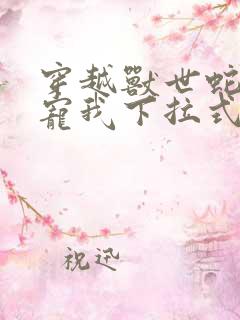 穿越獸世蛇
寵我下拉式
祝迅